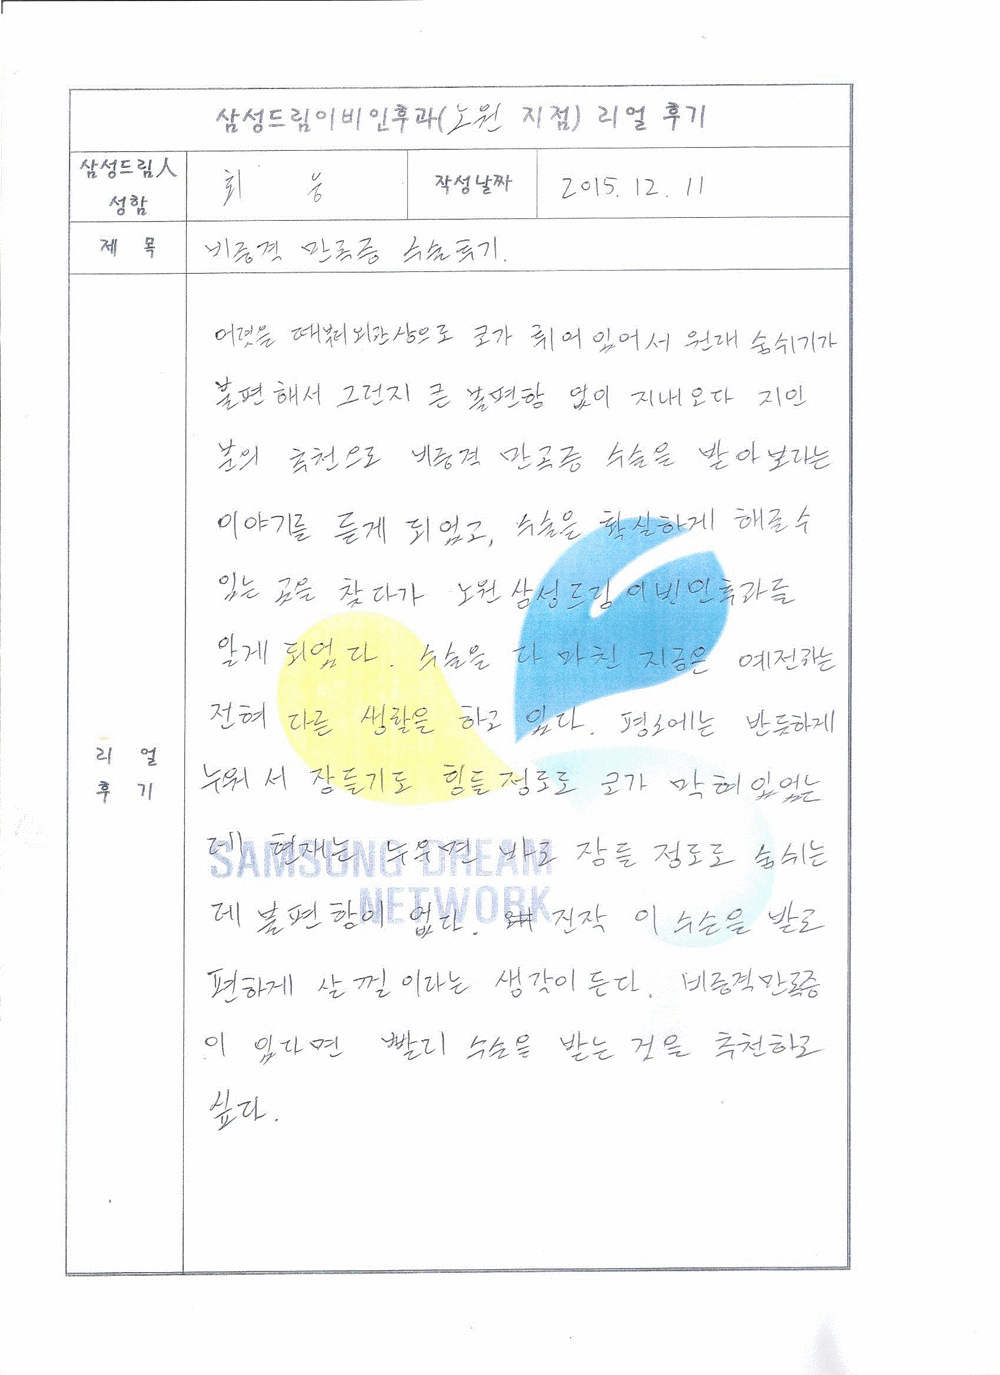 삼성드림이비인후과(노원 지점) 리얼 후기
삼성드림人
성함
최 웅
작성날짜
2015. 12. 11
제 목
비중격 만곡증 수술후기.
리 얼
후 기
어렸을 때부터 외관상으로 코가 휘어 있어서 원래 숨쉬기가
불편해서 그런지 큰 불편함 없이 지내오다 지인
분의 추천으로 비중격 만곡증 수술을 받아보라는
이야기를 듣게 되었고, 수술을 확실하게 해줄수
있는 곳을 찾다가 노원 삼성드림 이빈인후과를
알게 되었다. 수술을 다 마친 지금은 예전과는
전혀 다른 생활을 하고 있다. 평소에는 반듯하게
누워서 잠들기도 힘들정도로 코가 막혀있었는
데 현재는 누우면 바로 잠들 정도로 숨쉬는
데 불편함이 없다. 진작 이 수술을 받고
편하게 살껄 이라는 생각이 든다. 비중격만곡증
이 있다면 빨리 수술을 받는 것을 추천하고
싶다.
SAMSUNG DREAM
NETWORK